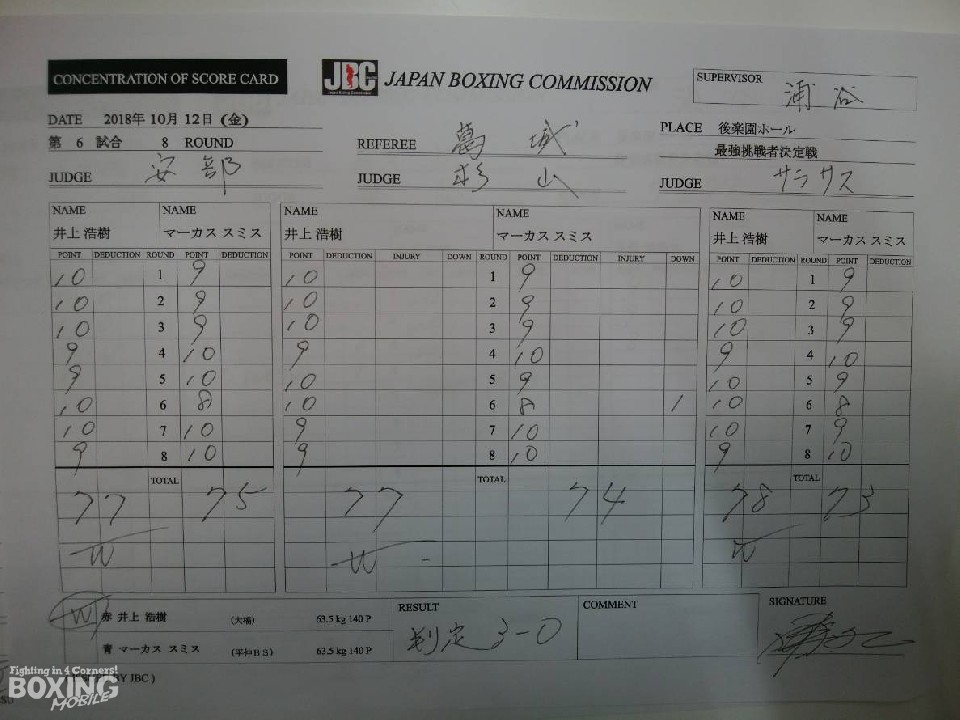 CONCENTRATION OF SCORE CARD JBC JAPAN BOXING COMMISSION SUPERVISOR 浦谷
DATE 2018年 10月 12日 (金) PLACE 後楽園ホール
第 6 試合 8 ROUND REFEREE 葛城 最強挑戦者決定戦
JUDGE 安部 JUDGE 杉山 JUDGE サラサス
NAME NAME NAME NAME NAME NAME
井上 浩樹 マーカス スミス 井上 浩樹 マーカス スミス 井上 浩樹 マーカス スミス
POINT DEDUCTION ROUND POINT DEDUCTION POINT DEDUCTION INJURY DOWN ROUND POINT DEDUCTION INJURY DOWN POINT DEDUCTION ROUND POINT DEDUCTION
10 1 9 10 1 9 10 1 9
10 2 9 10 2 9 10 2 9
10 3 9 10 3 9 10 3 9
9 4 10 9 4 10 9 4 10
9 5 10 10 5 9 10 5 9
10 6 8 10 6 8 1 10 6 8
10 7 10 9 7 10 10 7 9
9 8 10 9 8 10 9 8 10
TOTAL TOTAL TOTAL
77 75 77 74 78 73
W W W
W 赤 井上 浩樹 (大橋) 63.5 kg 140 P RESULT 判定 3-0 COMMENT SIGNATURE
青 マーカス スミス (平仲BS) 63.5 kg 140 P
BY JBC )
Fighting in 4 Corners!
BOXING
MOBILE